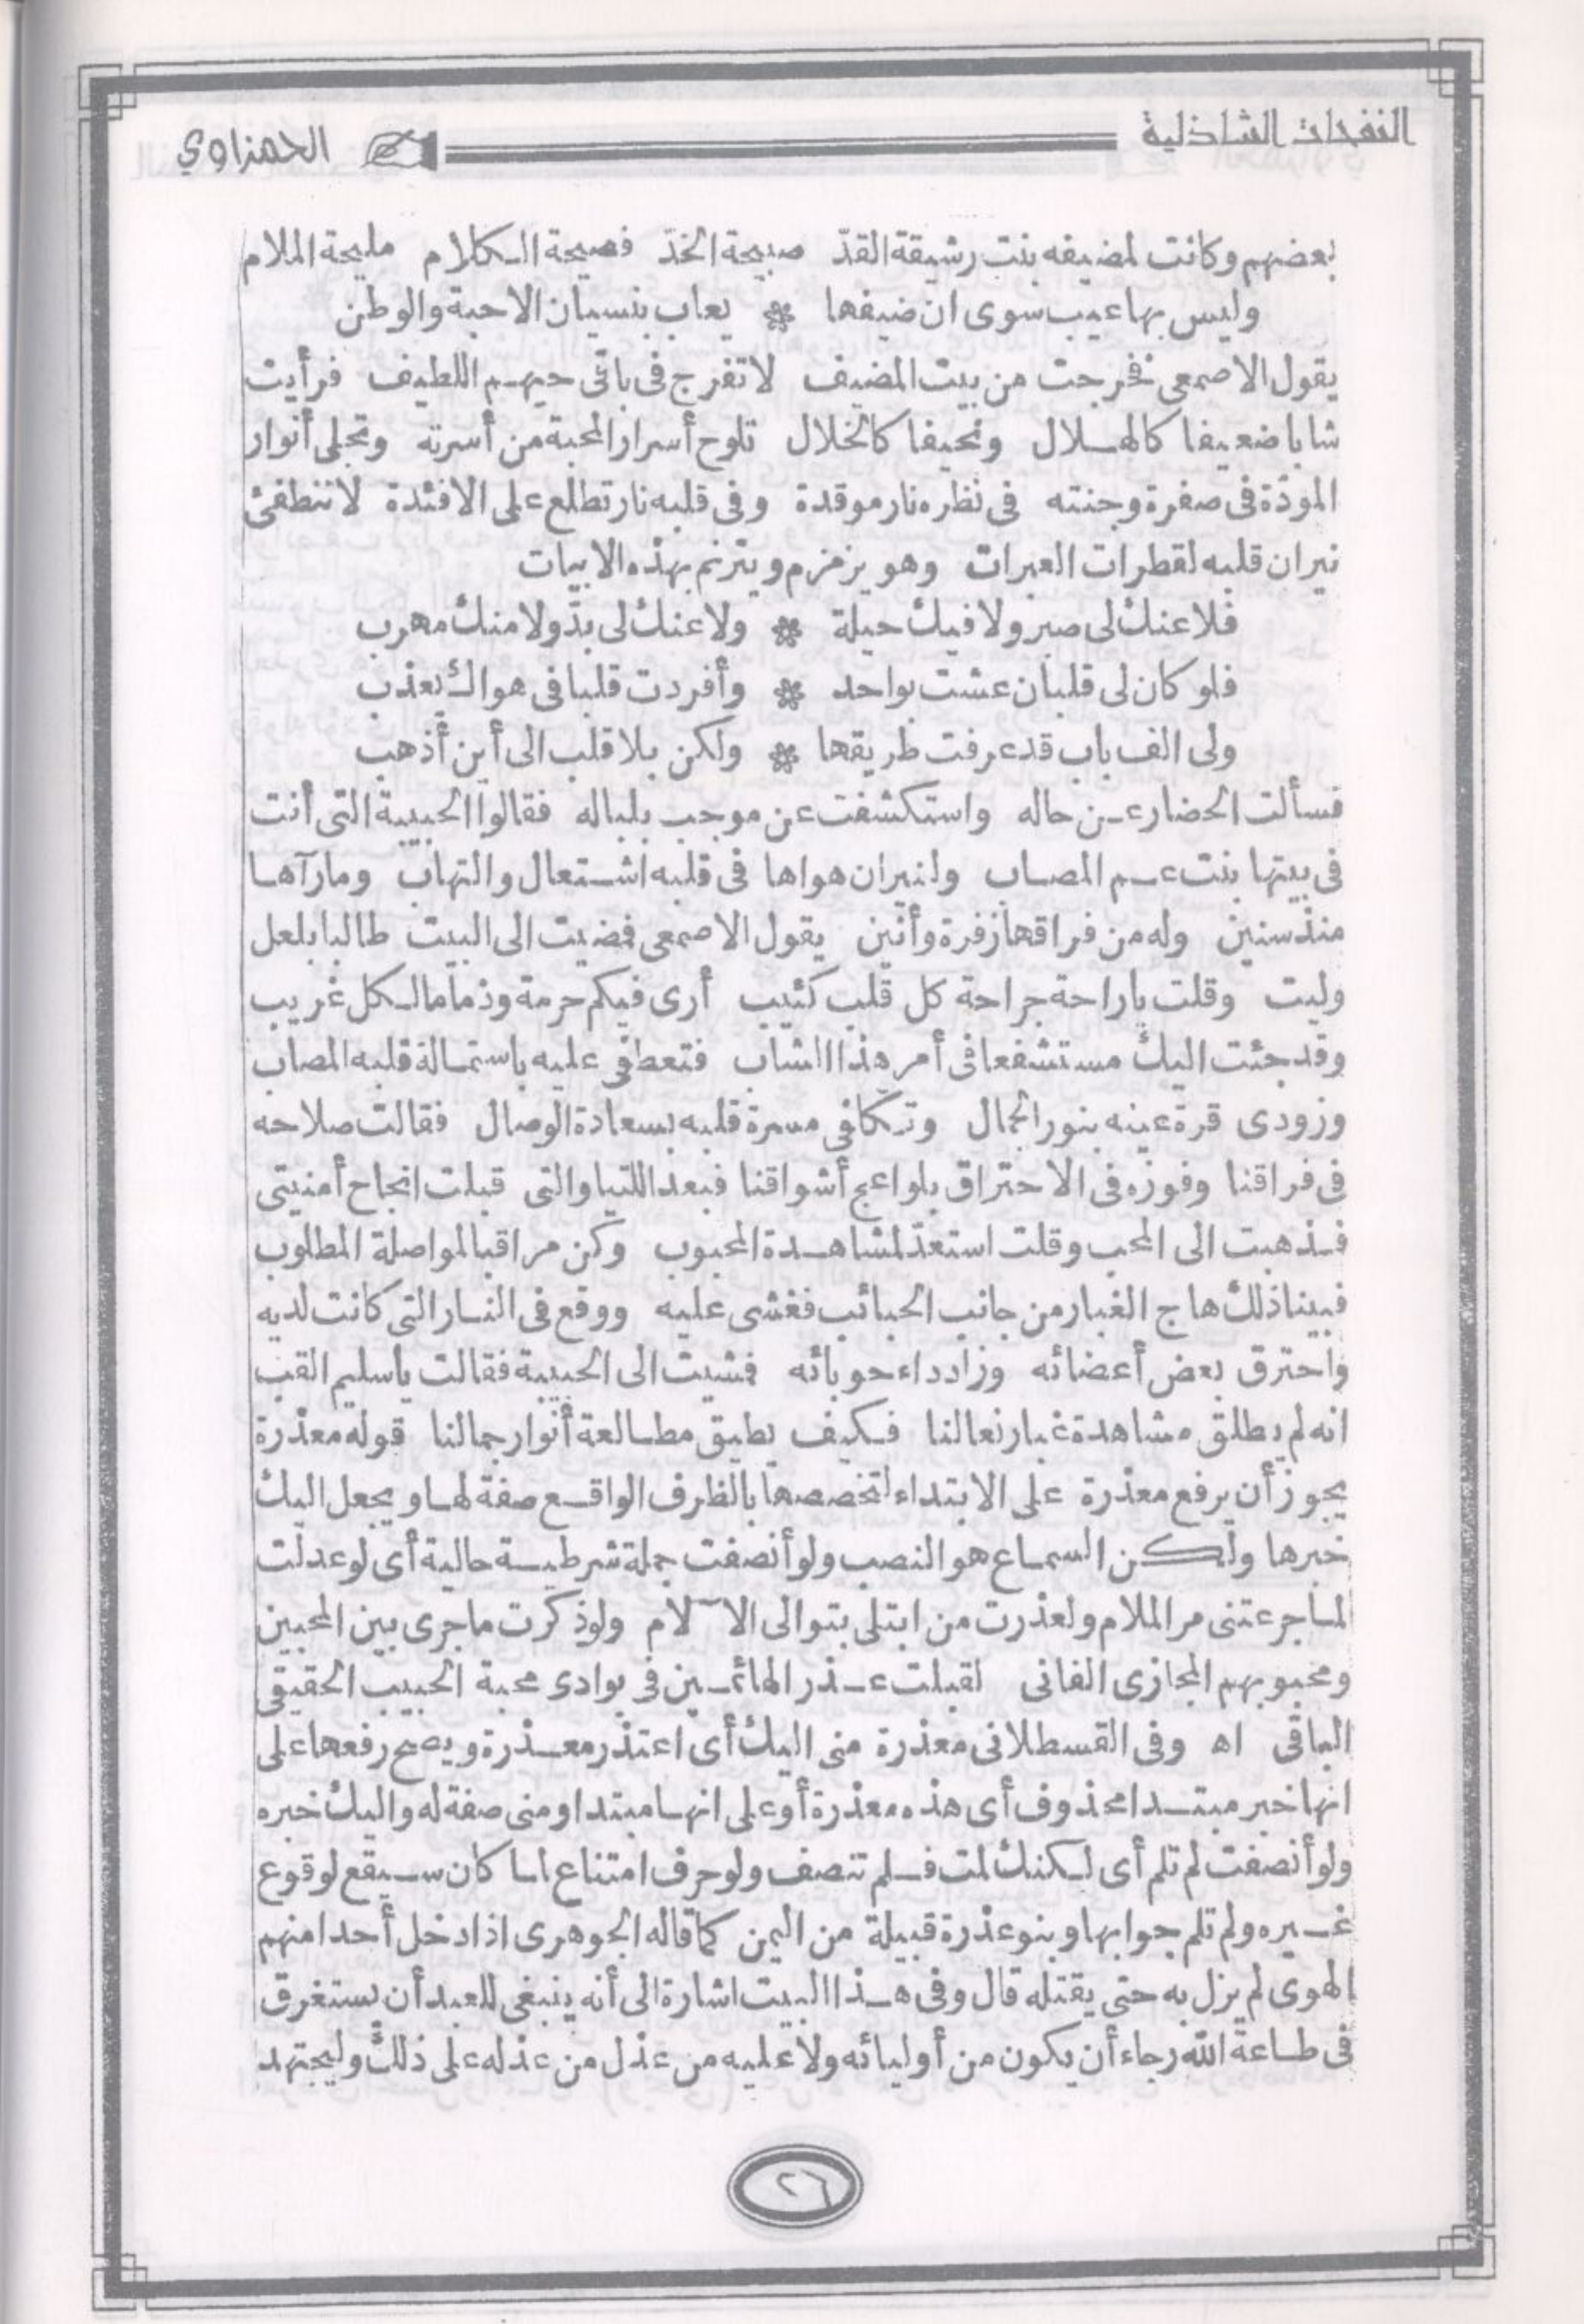 النفحات الشاذلية
الحمزاوي
بعضهم وكانت لمضيفه بنت رشيقة القدّ صبيحة الخدّ فصيحة الكلام مليحة الملام
وليس بها عيب سوى ان ضيفها * يعاب بنسيان الاحبة والوطن
يقول الاصمعى فخرجت من بيت المضيف لاتفرج فى باقى حيهم اللطيف فرأيت
شابا ضعيفا كالهلال ونحيفا كالخلال تلوح أسرار المحبة من أسرته وتجلى أنوار
المودّة فى صفرة وجنته فى نظره نار موقدة وفى قلبه نار تطلع على الافئدة لا تنطفئ
نيران قلبه لقطرات العبرات وهو يزمزم ويترنم بهذه الابيات
فلا عنك لى صبر ولا فيك حيلة * ولا عنك لى بدّ ولا منك مهرب
فلو كان لى قلبان عشت بواحد * وأفردت قلبا فى هواك يعذب
ولى الف باب قد عرفت طريقها * ولكن بلا قلب الى أين أذهب
فسألت الحضار عن حاله واستكشفت عن موجب بلباله فقالوا الحبيبة التى أنت
فى بيتها بنت عم المصاب ولنيران هواها فى قلبه اشتعال والتهاب وما رآها
منذ سنين وله من فراقها زفرة وأنين يقول الاصمعى فمضيت الى البيت طالبا بلعل
وليت وقلت ياراحة جراحة كل قلب كئيب أرى فيكم حرمة وذماما لكل غريب
وقد جئت اليك مستشفعا فى أمر هذا الشاب فتعطفى عليه باستمالة قلبه المصاب
وزودى قرة عينه بنور الجمال وتكافى مسرة قلبه بسعادة الوصال فقالت صلاحه
فى فراقنا وفوزه فى الاحتراق بلواعج أشواقنا فبعد اللتيا والتى قبلت انجاح أمنيتى
فذهبت الى المحب وقلت استعدّ لمشاهدة المحبوب وكن مراقبا لمواصلة المطلوب
فبينا ذلك هاج الغبار من جانب الحبائب فغشى عليه ووقع فى النار التى كانت لديه
واحترق بعض أعضائه وزاد داء حوبائه فمشيت الى الحبيبة فقالت يا سليم القب
انه لم يطلق مشاهدة غبار نعالنا فكيف يطيق مطالعة أنوار جمالنا قوله معذرة
يجوز أن يرفع معذرة على الابتداء لتخصصها بالظرف الواقع صفة لها ويجعل اليك
خبرها ولكن السماع هو النصب ولو أنصفت جملة شرطية حالية أى لو عدلت
لما جرعتنى مر الملام ولعذرت من ابتلى بتوالى الآلام ولو ذكرت ماجرى بين المحبين
ومحبوبهم المجازى الفانى لقبلت عذر الهائمين فى بوادى محبة الحبيب الحقيقى
الباقى اه وفى القسطلانى معذرة منى اليك أى اعتذر معذرة ويصح رفعها على
انها خبر مبتدا محذوف أى هذه معذرة أو على انها مبتدا ومنى صفة له واليك خبره
ولو أنصفت لم تلم أى لكنك لمت فلم تنصف ولو حرف امتناع لما كان سيقع لوقوع
غيره ولم تلم جوابها وبنو عذرة قبيلة من اليمن كما قاله الجوهرى اذا دخل أحدا منهم
الهوى لم يزل به حتى يقتله قال وفى هذا البيت اشارة الى أنه ينبغى للعبد أن يستغرق
فى طاعة الله رجاء أن يكون من أوليائه ولا عليه من عذل من عذله على ذلك وليجتهد
٢٦